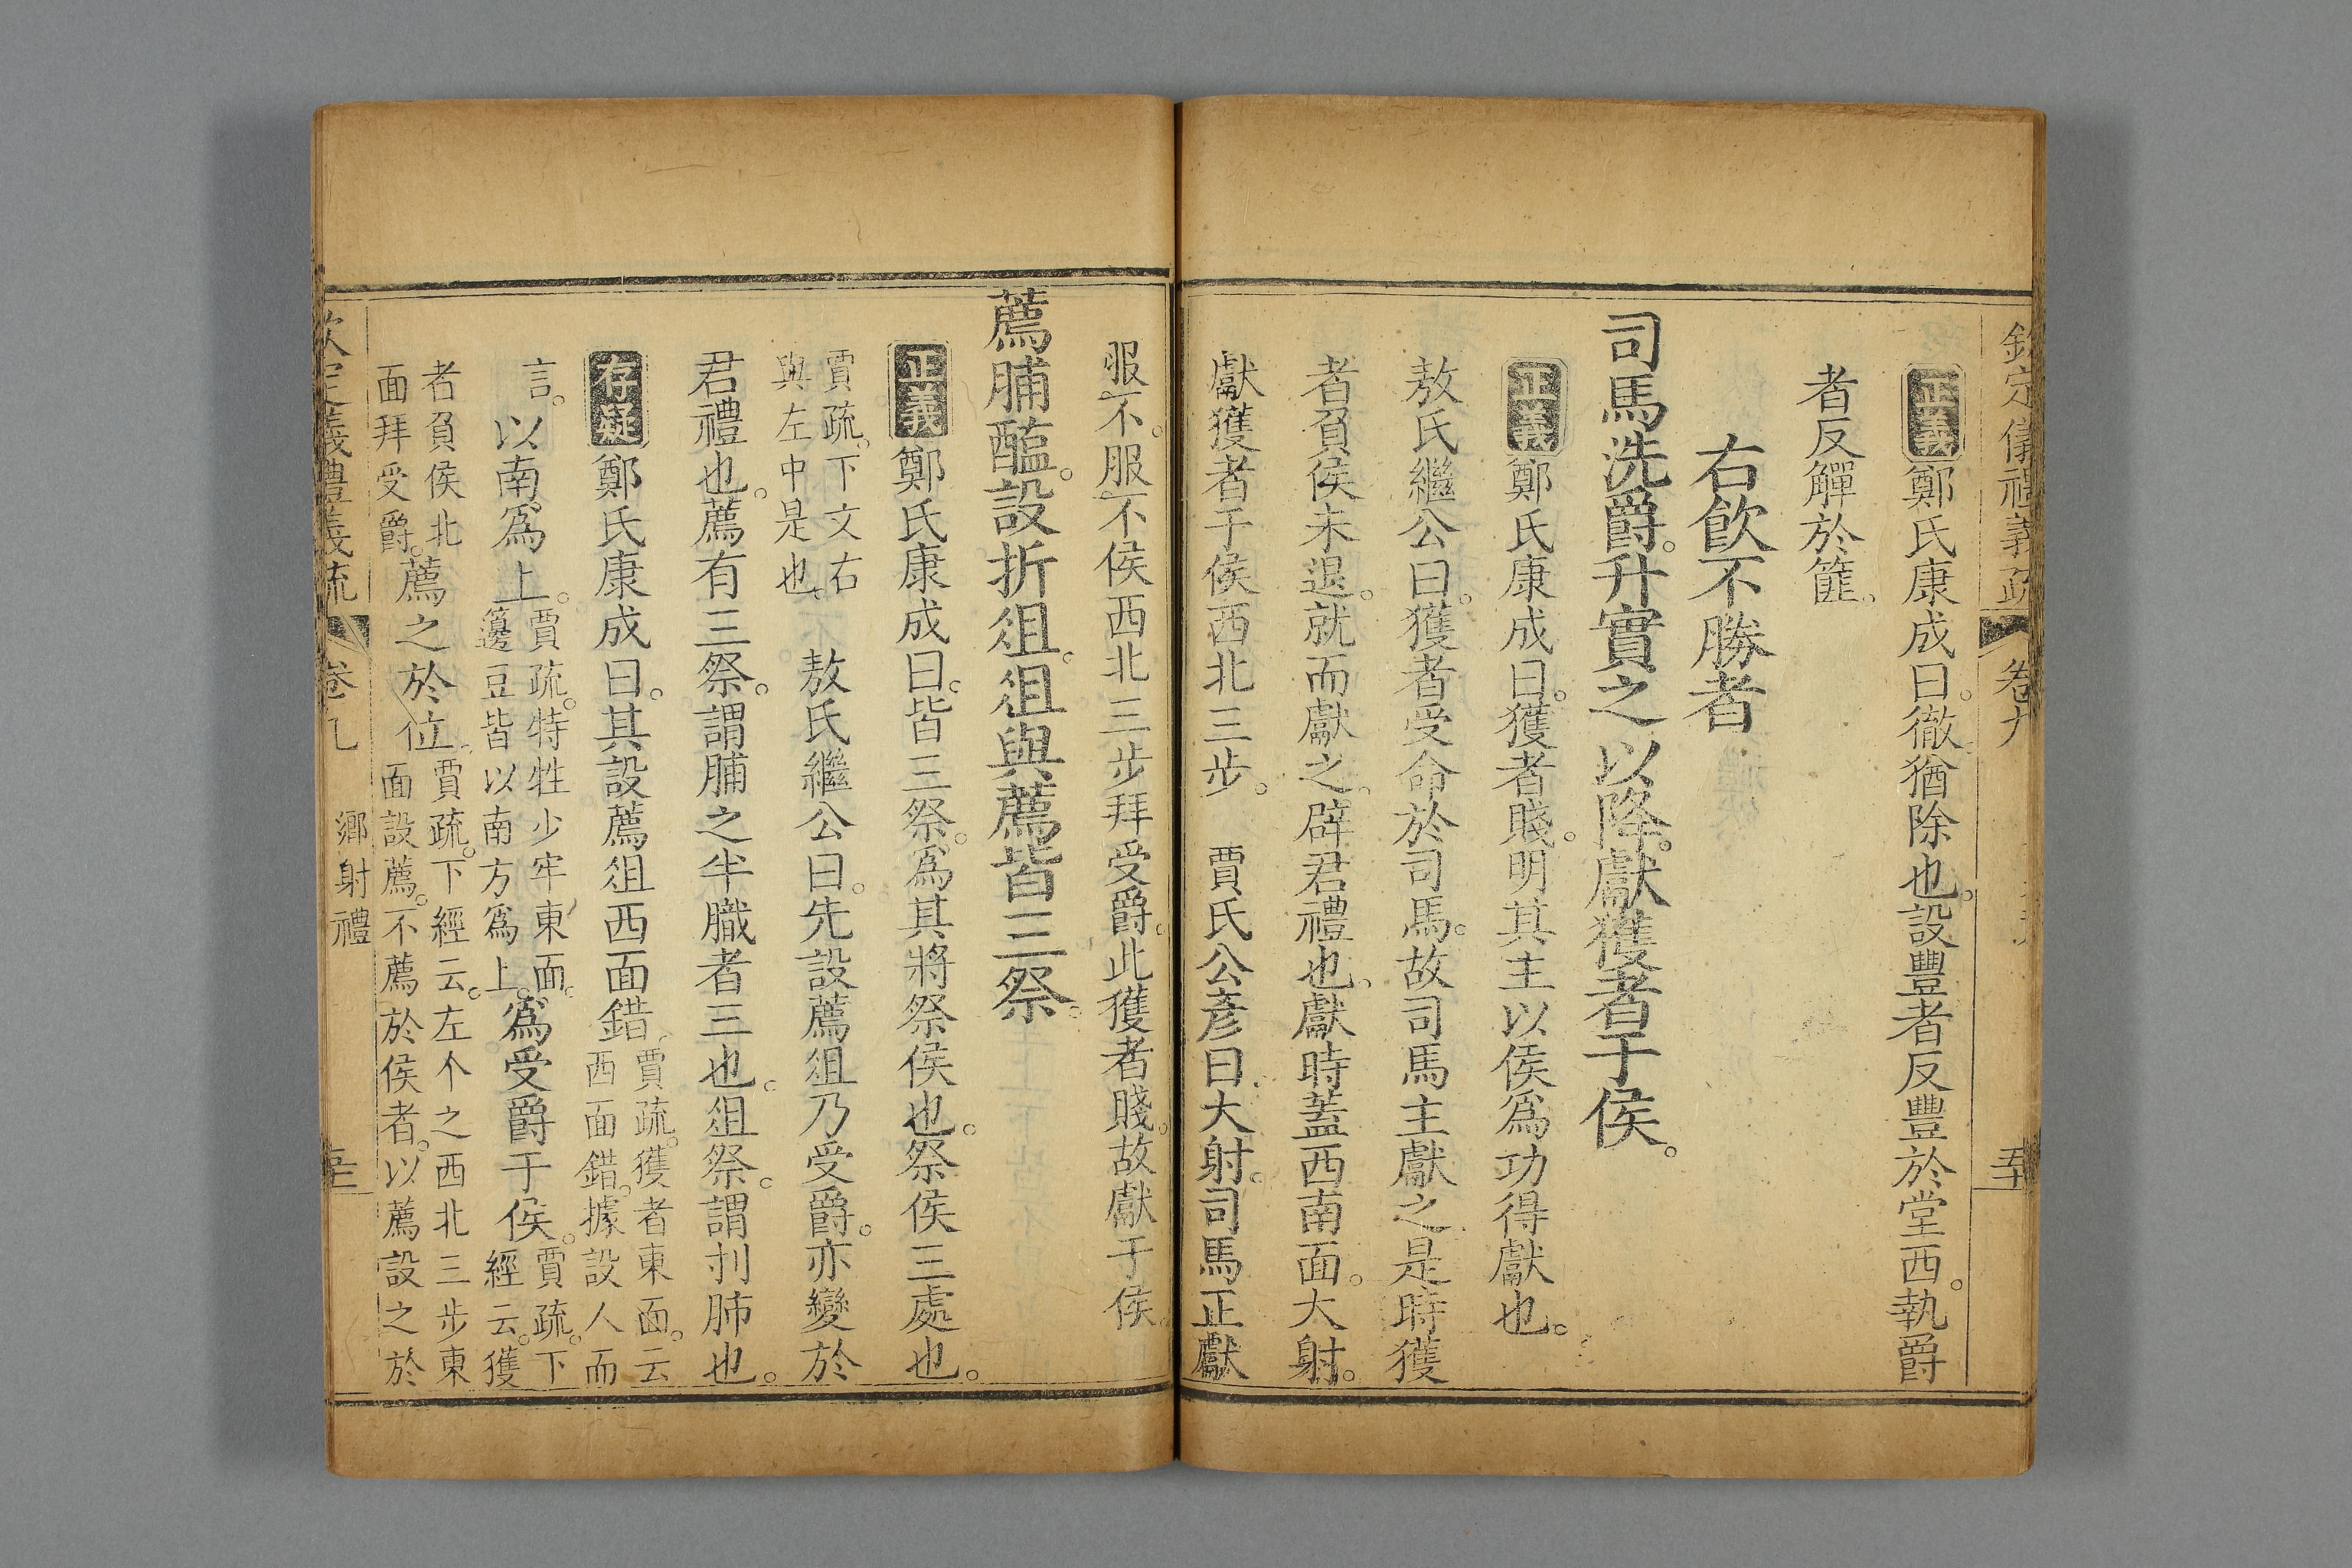 欽定儀禮義疏 卷九
正義鄭氏康成曰。徹猶除也。設豐者反豐於堂西。執爵
者反觶於篚。
右飲不勝者
司馬洗爵。升實之以降。獻獲者于侯。
正義鄭氏康成曰。獲者賤。明其主以侯爲功得獻也。
敖氏繼公曰。獲者受命於司馬。故司馬主獻之是時獲
者負侯未退。就而獻之。辟君禮也。獻時蓋西南面。大射。
獻獲者于侯西北三步。 賈氏公彥曰大射。司馬正獻
服不。服不侯西北三步拜受爵。此獲者賤。故獻于侯。
薦脯醢。設折俎。俎與薦皆三祭。
正義鄭氏康成曰。皆三祭。爲其將祭侯也。祭侯三處也。
賈疏。下文右
與左中是也。
敖氏繼公曰。先設薦俎乃受爵。亦變於
君禮也。薦有三祭。謂脯之半膱者三也。俎祭。謂刌肺也。
存疑鄭氏康成曰。其設薦俎西面錯。
賈疏。獲者東面。云
西面錯。據設人而
言。
以南爲上。
賈疏。特牲少牢東面。
籩豆皆以南方爲上。
爲受爵于侯。
賈疏。下
經云。獲
者負侯北
面拜受爵。
薦之於位。
賈疏。下經云。左个之西北三步東
面設薦。不薦於侯者。以薦設之於
欽定儀禮義疏 卷九 鄉射禮